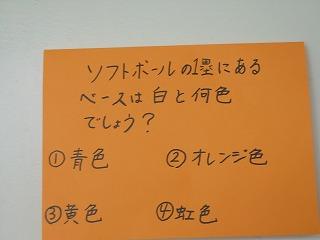 ソフトボールの1塁にある
ベースは白と何色
でしょう？
①青色 ②オレンジ色
③黄色 ④虹色